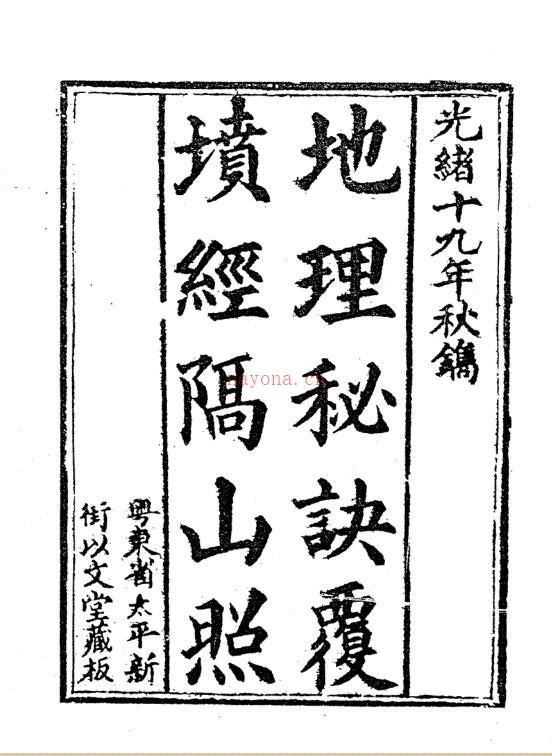 光緒十九年秋鐫
地理秘訣覆
墳經隔山照
粵東省太平新
街以文堂藏板
nayona.cn